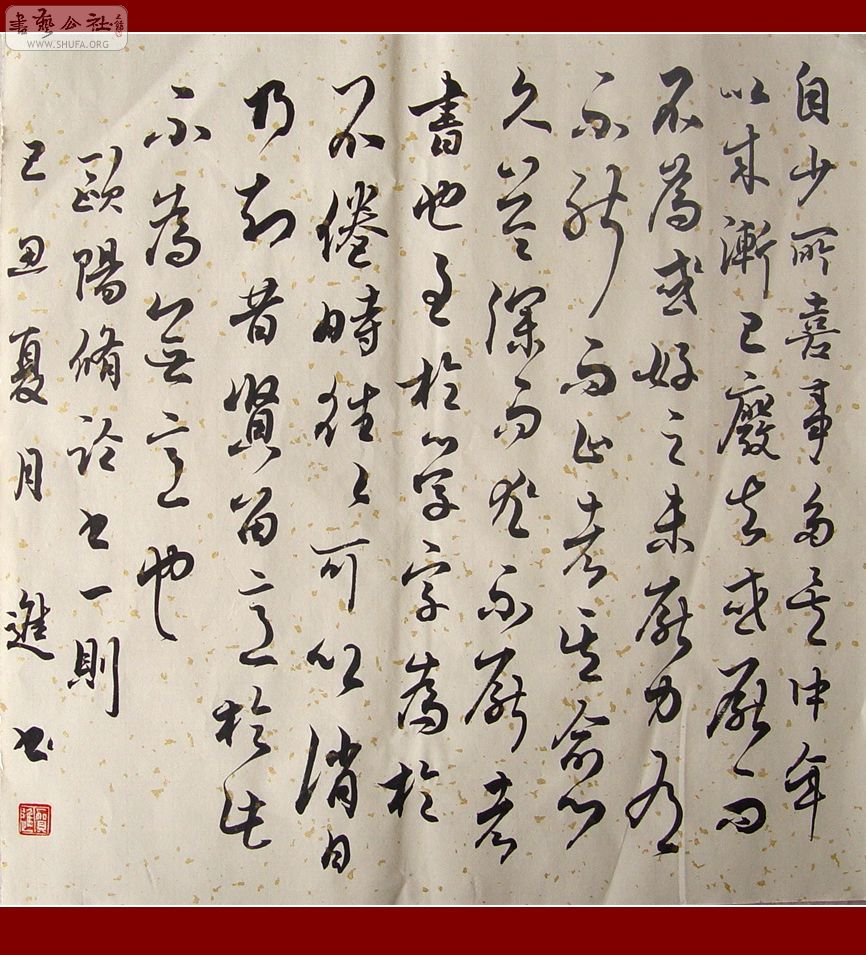 書藝公社
WWW.SHUFA.ORG
自少所喜事多矣中年
以来漸已廢去或厭而
不為或好之未厭力有
不能而止者其愈
久益深而尤不厭者
書也至於學字為於
不倦時往々可以消日
乃知昔賢留意於此
不為無意也
歐陽脩論書一則
己丑夏月 進書